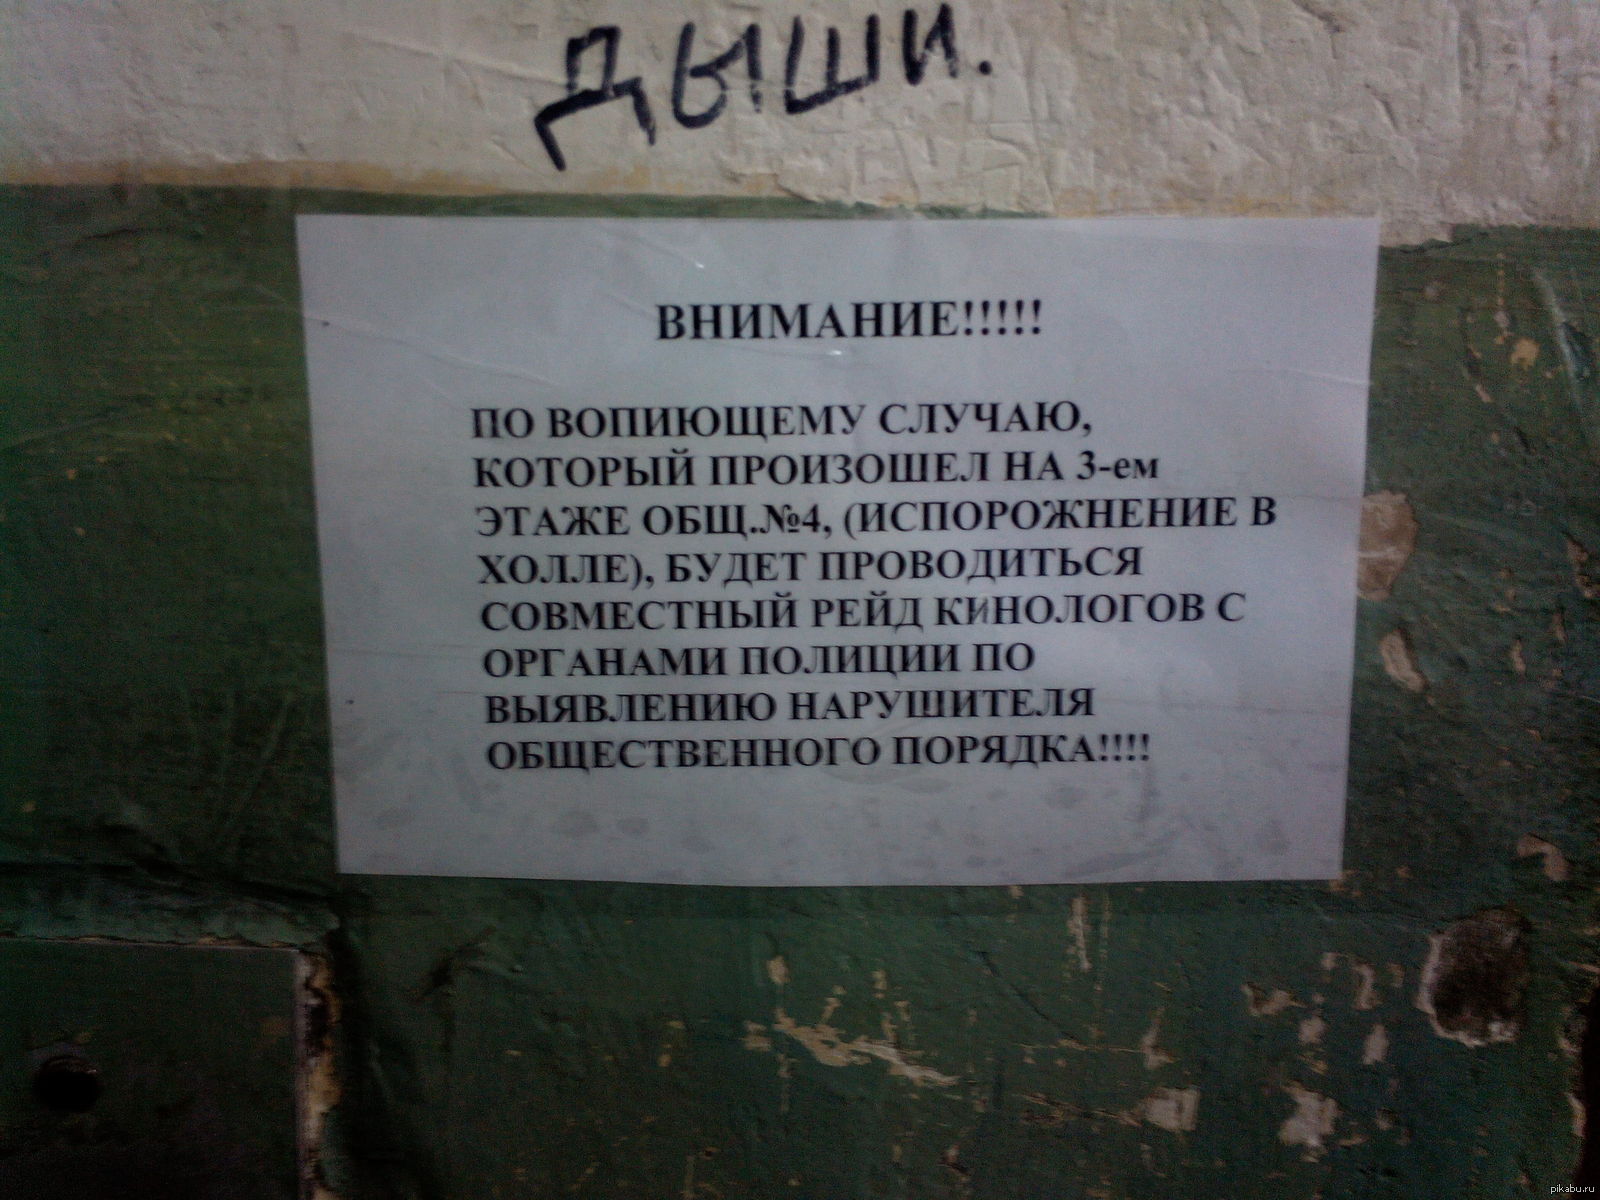 дыши.
ВНИМАНИЕ!!!!!
ПО ВОПИЮЩЕМУ СЛУЧАЮ,
КОТОРЫЙ ПРОИЗОШЕЛ НА 3-ем
ЭТАЖЕ ОБЩ.№4, (ИСПОРОЖНЕНИЕ В
ХОЛЛЕ), БУДЕТ ПРОВОДИТЬСЯ
СОВМЕСТНЫЙ РЕЙД КИНОЛОГОВ С
ОРГАНАМИ ПОЛИЦИИ ПО
ВЫЯВЛЕНИЮ НАРУШИТЕЛЯ
ОБЩЕСТВЕННОГО ПОРЯДКА!!!!
pikabu.ru